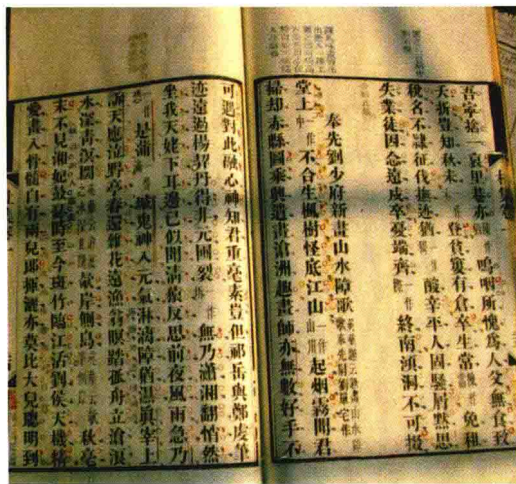 吾寧捨一哀里巷亦嗚咽所愧為人父無食致
夭折豈知秋未登貧窶有倉卒生常免租
稅名不隸征伐撫迹猶酸辛平人固騷屑默思
失業徒因念遠戍卒憂端齊終南澒洞不可掇
奉先劉少府新畫山水障歌英華題云新畫山水障歌奉先尉劉單宅作
堂上一作中不合生楓樹怪底江山一作山川起烟霧聞君
掃却赤縣圖乘興遣畫滄洲趣畫師亦無數好手不
可遇對此融心神知君重毫素豈但祁岳與鄭虔筆
迹遠過楊契丹得非元圃裂無乃瀟湘翻悄然
坐我天姥下耳邊已似聞清猿反思前夜風雨急乃
一作是蒲城鬼神入元氣淋漓障猶濕真宰上
訴天應泣野亭春還雜花遠漁翁暝踏孤舟立滄浪
水深青溟闊欹岸側島秋毫
末不見湘妃鼓瑟時至今斑竹臨江活劉侯天機精
愛畫入骨髓自有兩兒郎揮灑亦莫比大兒聰明到